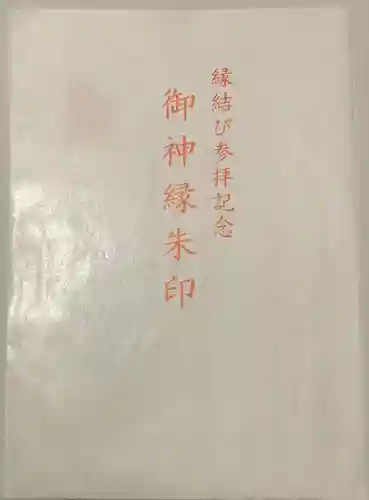 縁結び参拝記念
御神縁朱印